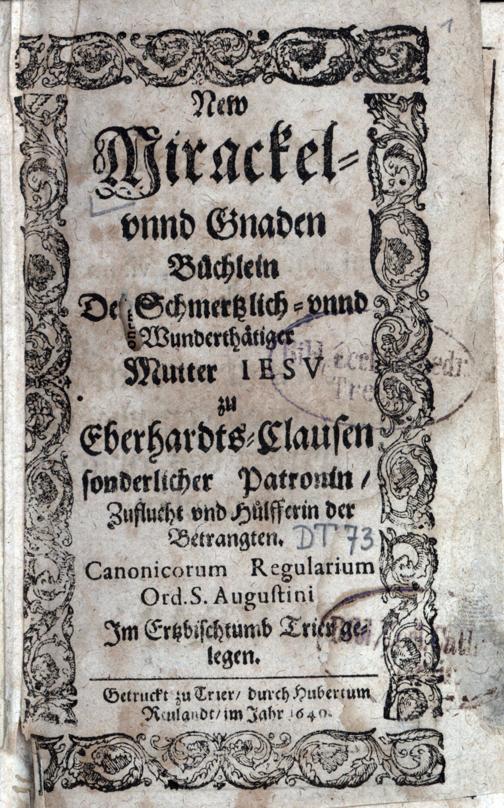 1
New
Mirackel-
vnnd Gnaden
Büchlein
Der Schmertzlich-vnnd
Wunderthätiger
Mutter IESV
zu
Eberhardts-Clausen
sonderlicher Patronin /
Zuflucht vnd Hülfferin der
Betrangten.
DT 73
Canonicorum Regularium
Ord. S. Augustini
Im Ertzbischtumb Trier ge-
legen.
Getruckt zu Trier/ durch Hubertum
Reulandt/ im Jahr 1640.